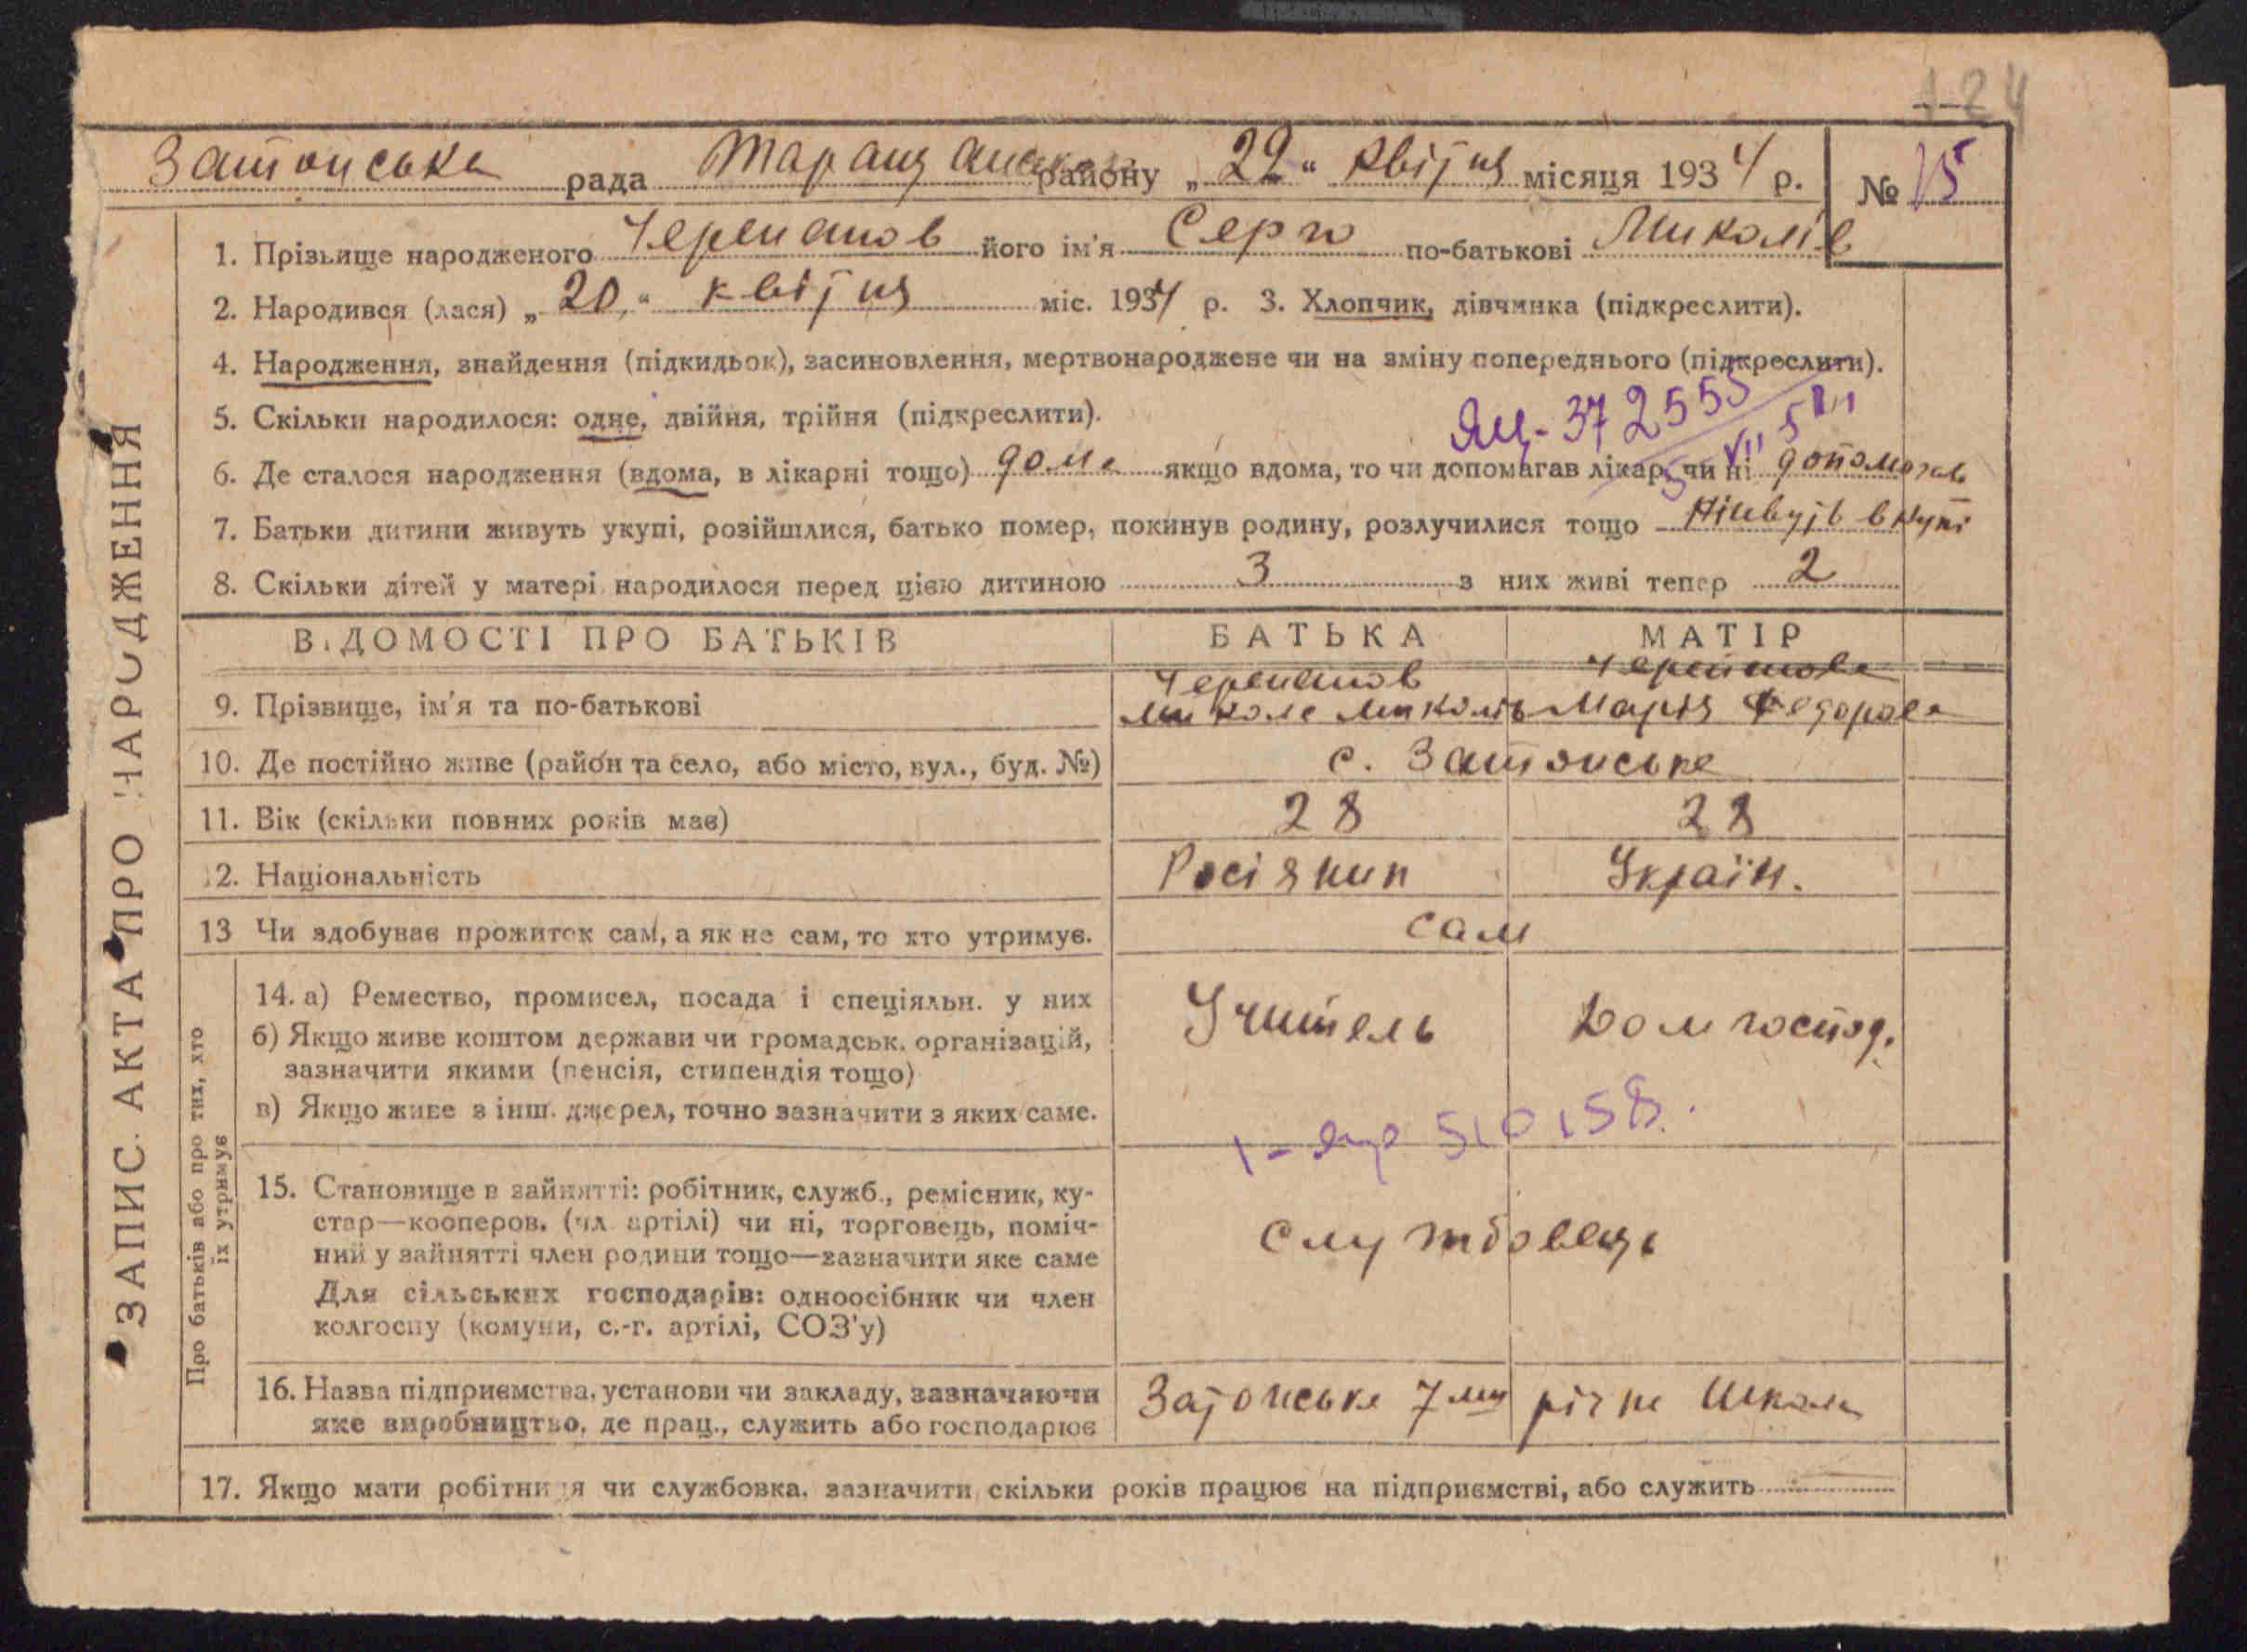 124
Затонська рада Таращанськ району „22“ квітня місяця 1934 р. № 15
1. Прізьище народженого Черепанов його ім'я Серго по-батькові Миколів
2. Народився (лася) „20“ квітня міс. 1934 р. 3. Хлопчик, дівчинка (підкреслити).
4. Народження, знайдення (підкидьок), засиновлення, мертвонароджене чи на зміну попереднього (підкреслити).
5. Скільки народилося: одне, двійня, трійня (підкреслити).
ЯЦ-372555
6. Де сталося народження (вдома, в лікарні тощо) дома якщо вдома, то чи допомагав лікар, чи ні допомогав
7. Батьки дитини живуть укупі, розійшлися, батько помер, покинув родину, розлучилися тощо Живуть вкупі
8. Скільки дітей у матері народилося перед цією дитиною 3 з них живі тепер 2
ВІДОМОСТІ ПРО БАТЬКІВ БАТЬКА МАТІР
Черепанов
9. Прізвище, ім'я та по-батькові Микола Миколів Марія Федорова
10. Де постійно живе (район та село, або місто, вул., буд. №) с. Затонське
11. Вік (скільки повних років має) 28 28
12. Національність Росіянин Україн.
13 Чи здобуває прожиток сам, а як не сам, то хто утримує. сам
14. а) Ремество, промисел, посада і спеціяльн. у них Учитель Домгоспод.
б) Якщо живе коштом держави чи громадськ. організацій,
зазначити якими (пенсія, стипендія тощо)
в) Якщо живе з інш. джерел, точно зазначити з яких саме.
510158.
15. Становище в зайнятті: робітник, служб., ремісник, ку-
стар—кооперов. (чл. артілі) чи ні, торговець, поміч-
ний у зайнятті член родини тощо—зазначити яке саме службовець
Для сільських господарів: одноосібник чи член
колгоспу (комуни, с.-г. артілі, СОЗ'у)
16. Назва підприємства, установи чи закладу, зазначаючи Затонська 7 ми річна школа
яке виробництво, де прац., служить або господарює
17. Якщо мати робітниця чи службовка, зазначити скільки років працює на підприємстві, або служить
ЗАПИС АКТА ПРО НАРОДЖЕННЯ
Про батьків або про тих, хто
їх утримує